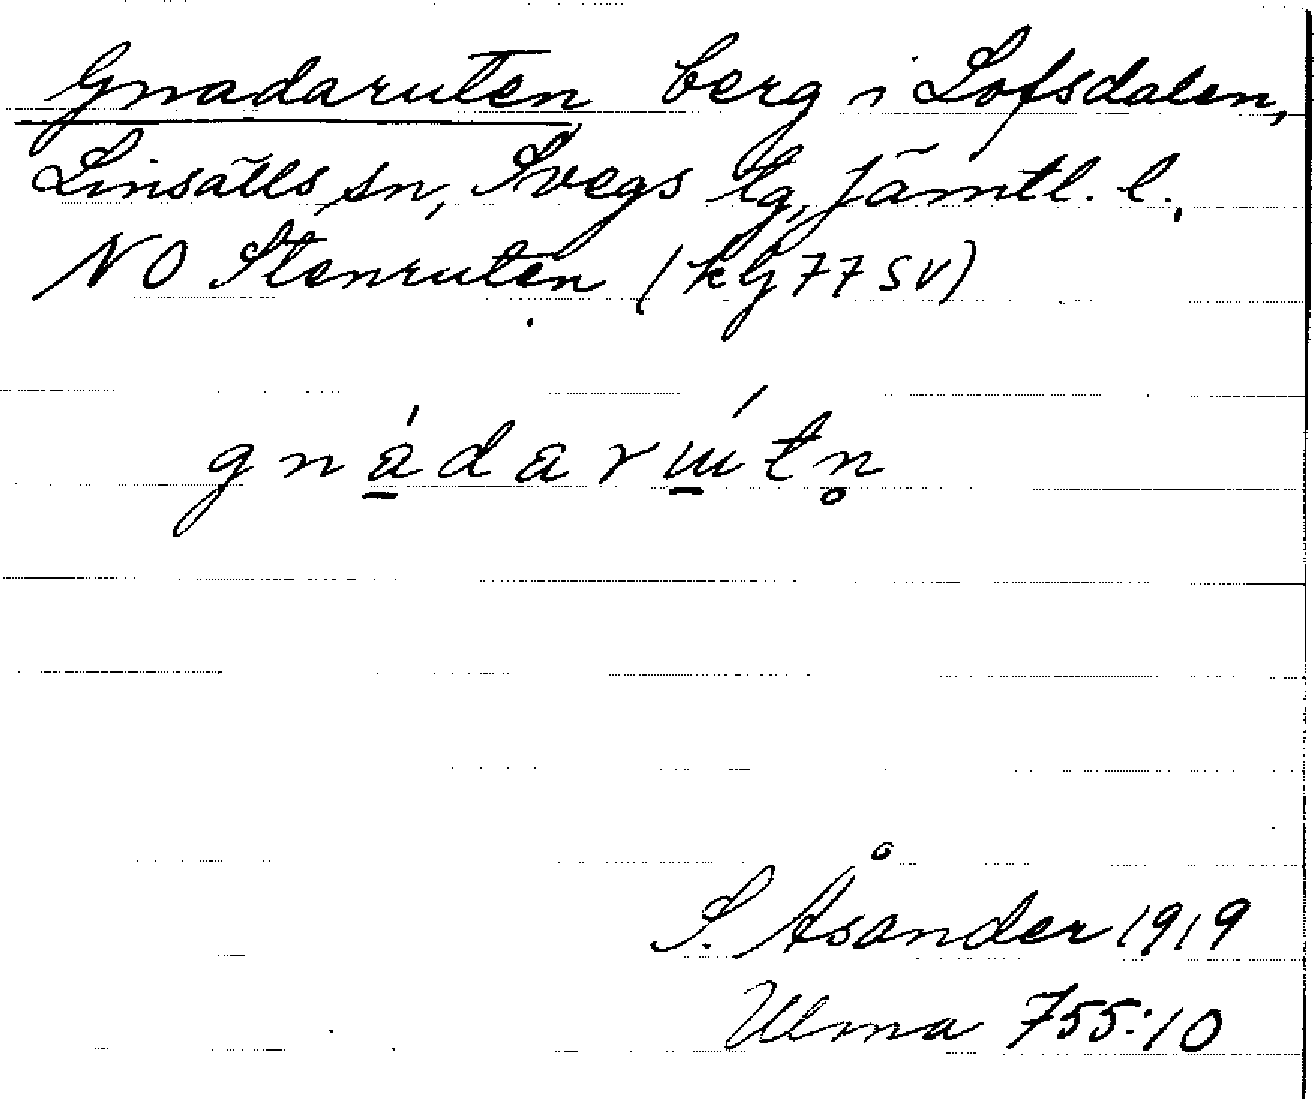 Gnadaruten berg i Lofsdalen,
Linsälls sn, Svegs tg, Jämtl. l.,
NO Stenruten (kbl 77 SV)
gnádarútn̥
S. Åsander 1919
Ulma 755:10